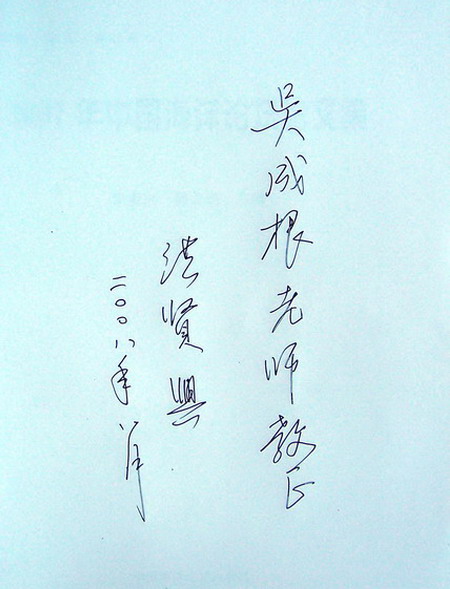 吴成根老师教正
洪贤興
二〇〇八年八月